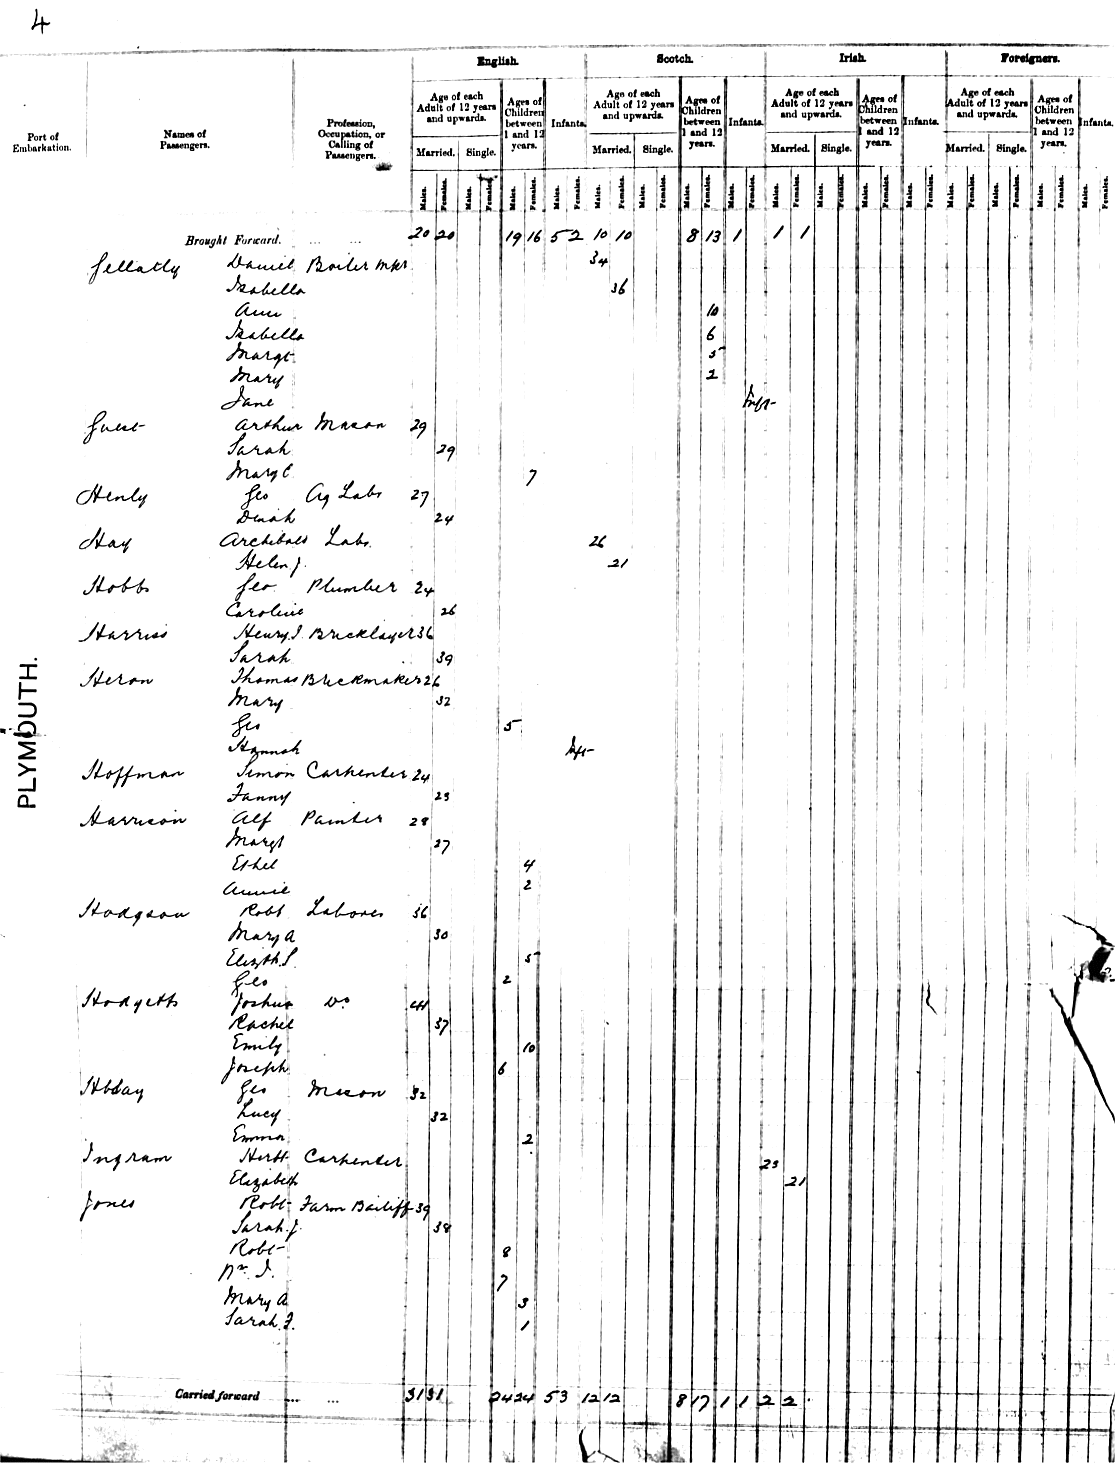 4
English. Scotch. Irish. Foreigners.
Port of Embarkation. Names of Passengers. Profession, Occupation, or Calling of Passengers. Age of each Adult of 12 years and upwards. Ages of Children between 1 and 12 years. Infants. Age of each Adult of 12 years and upwards. Ages of Children between 1 and 12 years. Infants. Age of each Adult of 12 years and upwards. Ages of Children between 1 and 12 years. Infants. Age of each Adult of 12 years and upwards. Ages of Children between 1 and 12 years. Infants.
Married. Single. Married. Single. Married. Single. Married. Single.
Males. Females. Males. Females. Males. Females. Males. Females. Males. Females. Males. Females. Males. Females. Males. Females. Males. Females. Males. Females. Males. Females. Males. Females. Males. Females. Males. Females. Males. Females. Males. Females.
Brought Forward. ... ... 20 20 19 16 5 2 10 10 8 13 1 1 1
Gellatly Daniel Boiler Mkr 34
Isabella 36
Ann 10
Isabella 6
Margt 5
Mary 2
Jane Inft
Guest Arthur Mason 29
Sarah 29
Mary C 7
Henly Geo Ag Labr 27
Dinah 24
Hay Archibald Labr. 26
Helen J. 21
Hobbs Geo Plumber 24
Caroline 26
Harriss Henry J. Bricklayer 36
Sarah 39
Heron Thomas Brickmaker 26
Mary 32
Geo 5
Hannah Inft
Hoffman Simon Carpenter 24
Fanny 23
Harrison Alf Painter 28
Margt 27
Ethel 4
Annie 2
Hodgson Robt Laborer 36
Mary A 30
Elizth S. 5
Geo 2
Hodgetts Joshua Do 41
Rachel 37
Emily 10
Joseph 6
Geo Mason 32
Lucy 32
Emma 2
Ingram Herbt Carpenter 23
Elizabeth 21
Jones Robt Farm Bailiff 39
Sarah J. 38
Robt 8
Wm. J. 7
Mary A 3
Sarah F. 1
Carried forward ... ... 31 31 24 24 5 3 12 12 8 17 1 1 2 2
PLYMOUTH.